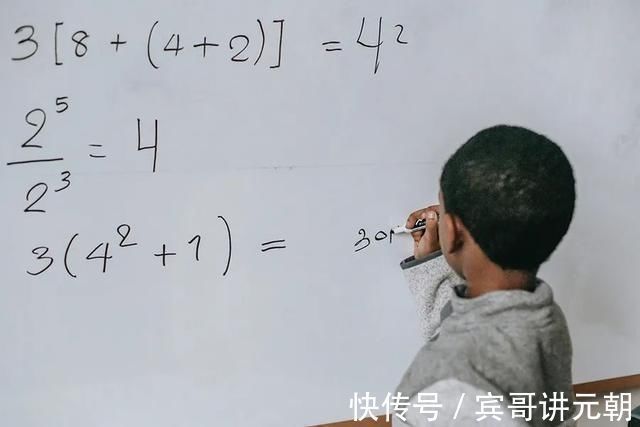 3[8+(4+2)] = 42
2⁵/2³ = 4
3(4²+1) =
快传号 / 宾哥讲元朝